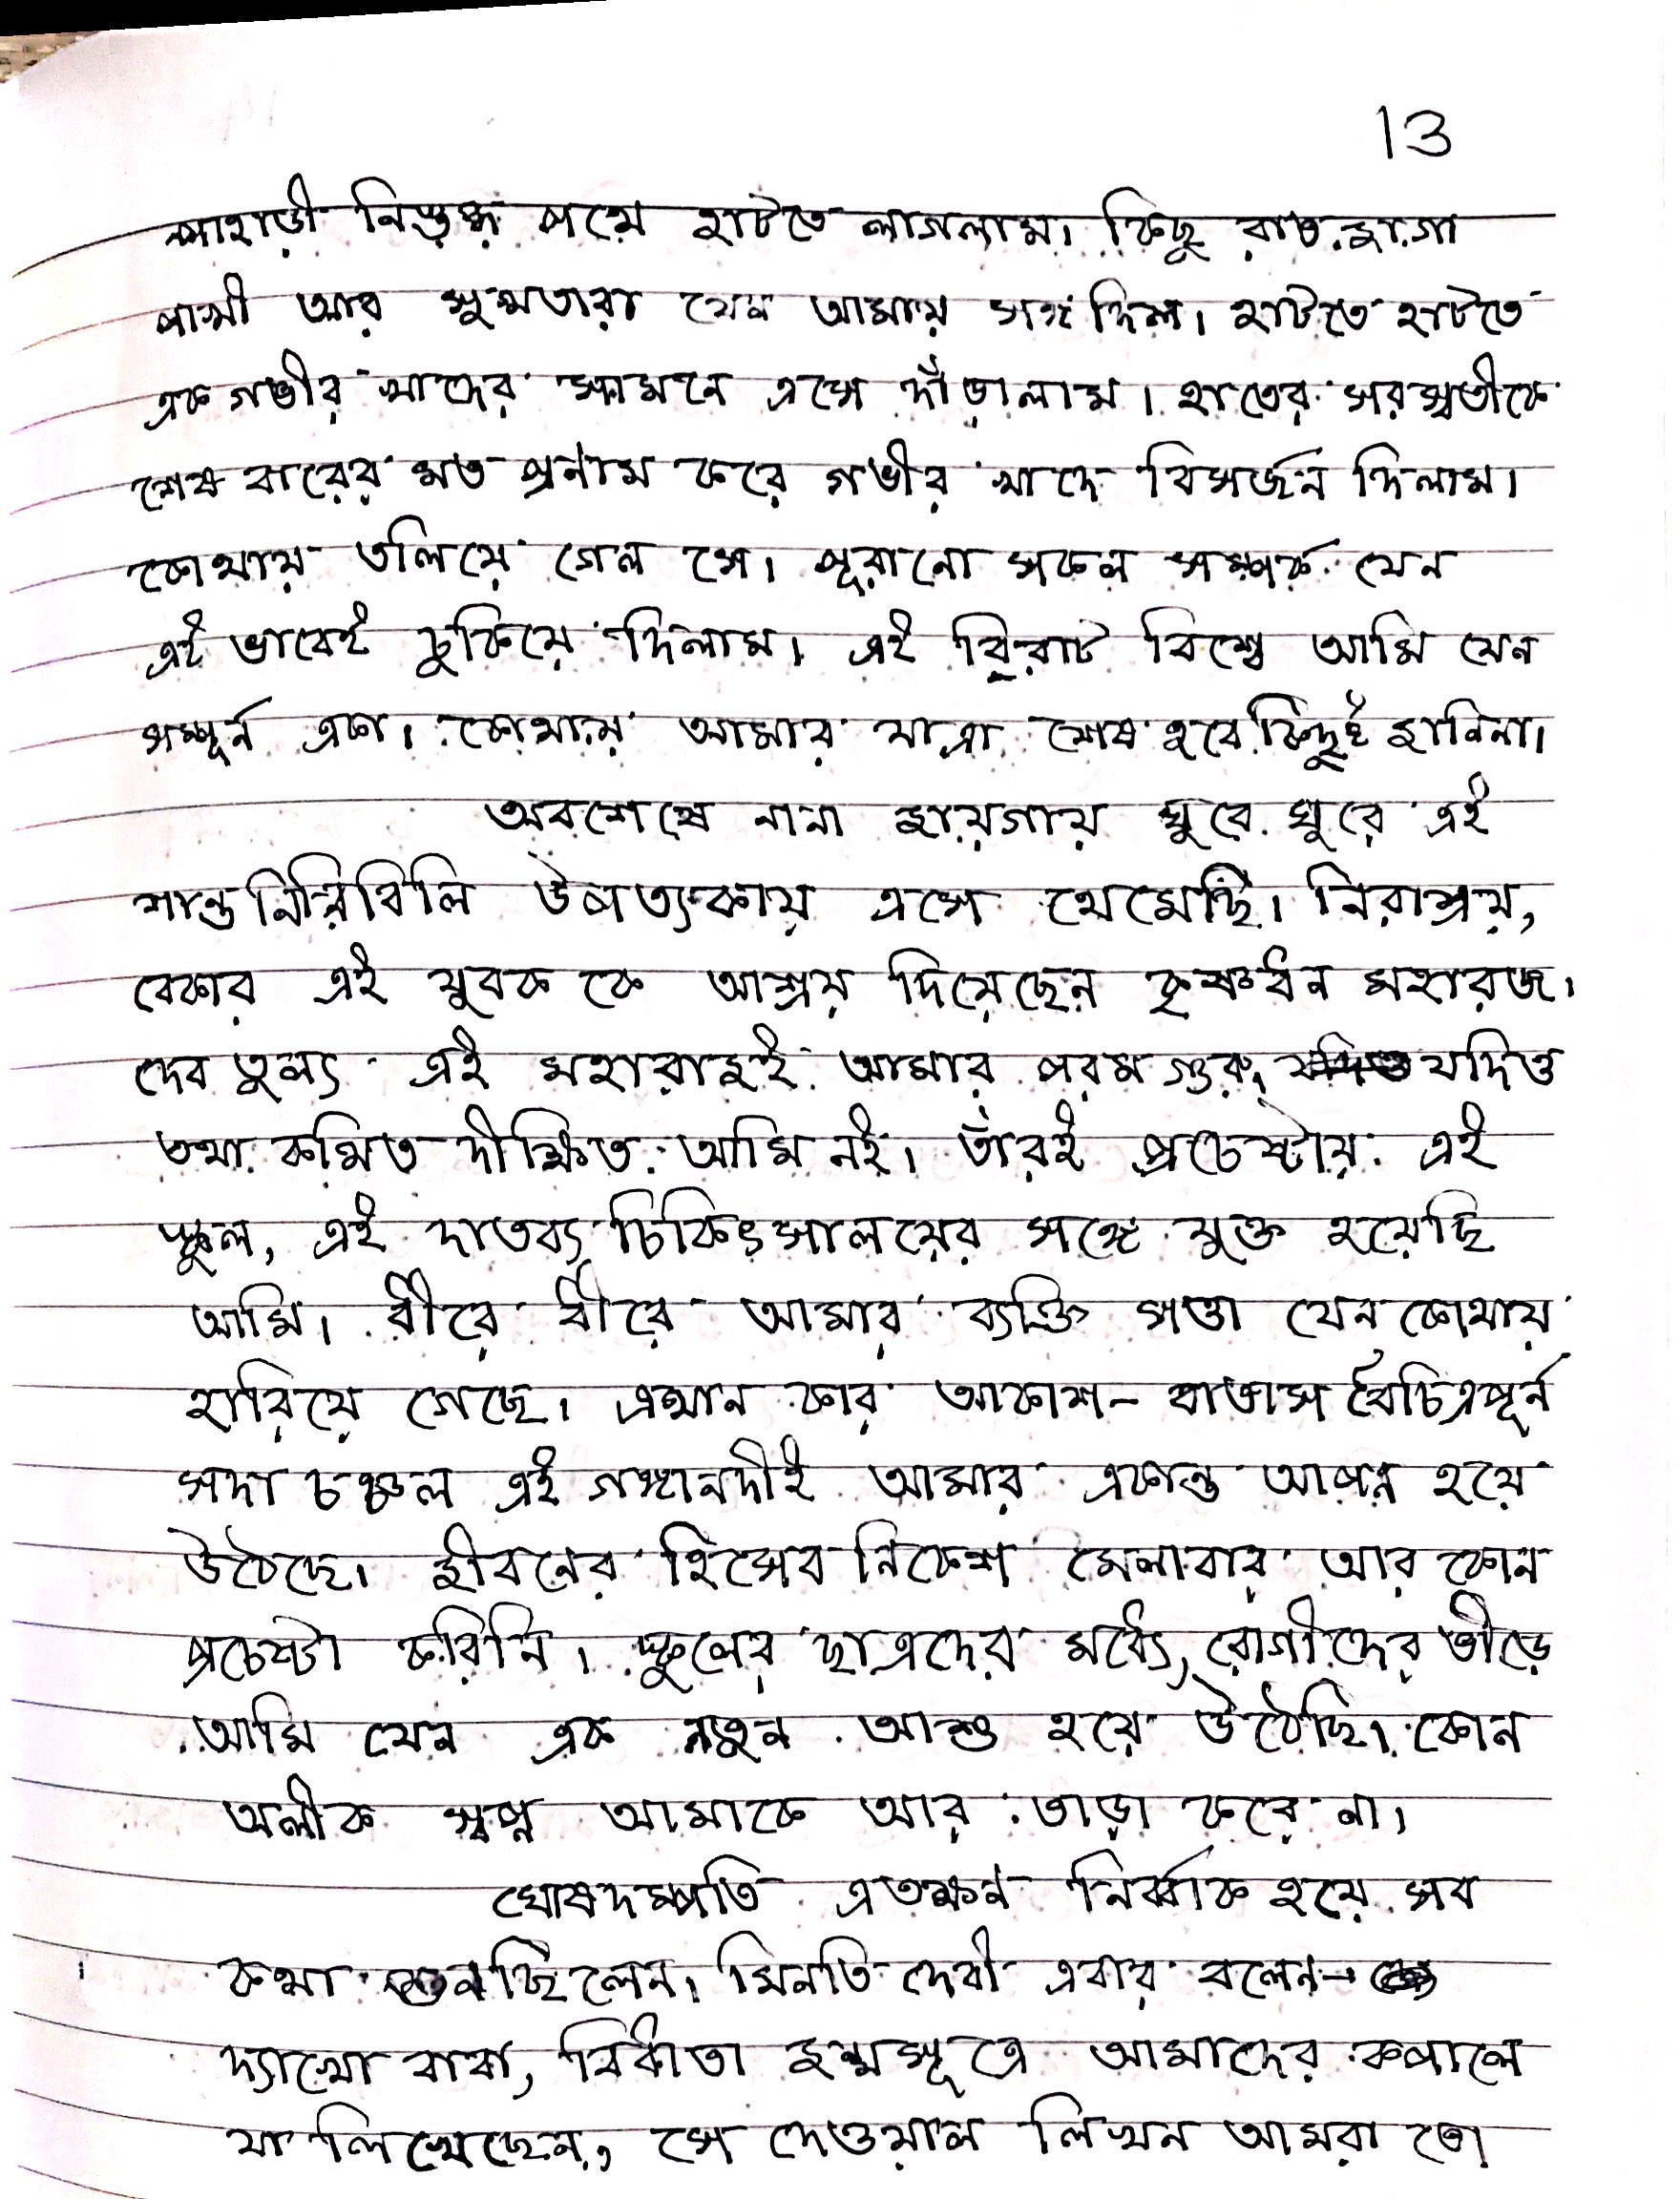 13
পাহাড়ী নিস্তব্ধ পথে হাটতে লাগলাম। কিছু রাত জাগা
পাখী আর শুকতারা যেন আমায় সঙ্গ দিল। হাটতে হাটতে
এক গভীর খাদের সামনে এসে দাঁড়ালাম। হাতের সরস্বতীকে
শেষ বারের মত প্রনাম করে গভীর খাদে বিসর্জন দিলাম।
কোথায় তলিয়ে গেল সে। পুরানো সকল সম্পর্ক যেন
এই ভাবেই চুকিয়ে দিলাম। এই বিরাট বিশ্বে আমি যেন
সম্পূর্ন একা। কোথায় আমার যাত্রা শেষ হবে কিছুই জানিনা।
অবশেষে নানা জায়গায় ঘুরে ঘুরে এই
শান্ত নিরিবিলি উপত্যকায় এসে থেমেছি। নিরাশ্রয়,
বেকার এই যুবক কে আশ্রয় দিয়েছেন কৃষ্ণধন মহারজ।
দেব তুল্য এই মহারাজই আমার পরম গুরু, যদিও
তথা কথিত দীক্ষিত আমি নই। তাঁরই প্রচেষ্টায় এই
স্কুল, এই দাতব্য চিকিৎসালয়ের সঙ্গে যুক্ত হয়েছি
আমি। ধীরে ধীরে আমার ব্যক্তি সত্তা যেন কোথায়
হারিয়ে গেছে। এখান কার আকাশ - বাতাস বৈচিত্রপূর্ন
সদা চঞ্চল এই গঙ্গানদীই আমার একান্ত আপন হয়ে
উঠেছে। জীবনের হিসেব নিকেশ মেলাবার আর কোন
প্রচেষ্টা করিনি। স্কুলের ছাত্রদের মধ্যে, রোগীদের ভীড়ে
আমি যেন এক নতুন আশু হয়ে উঠেছি। কোন
অলীক স্বপ্ন আমাকে আর তাড়া করে না।
ঘোষদম্পতি এতক্ষন নির্ব্বাক হয়ে সব
কথা শুনছিলেন। মিনতি দেবী এবার বলেন-
দ্যাখো বাবা, বিধাতা জন্মসূত্রে আমাদের কপালে
যা লিখেছেন, সে দেওয়াল লিখন আমরা তো